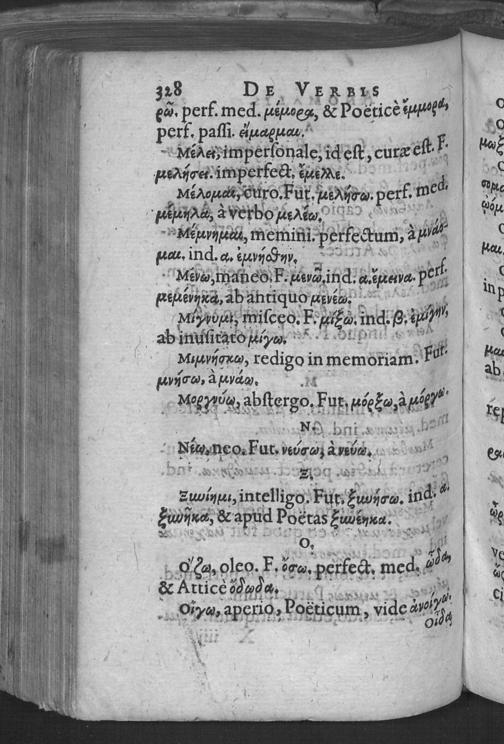 328 DE VERBIS
ρῶ. perf. med. μέμορα, & Poëticè ἔμμορα,
perf. passi. εἵμαρμαι.
Μέλει, impersonale, id est, curæ est. F.
μελήσει. imperfect. ἔμελλε.
Μέλομαι, curo. Fut. μελήσω. perf. med.
μέμηλα, à verbo μελέω.
Μέμνημαι, memini. perfectum, à μνάο-
μαι. ind. α. ἐμνήσθην.
Μένω, maneo. F. μενῶ. ind. α. ἔμεινα. perf.
μεμένηκα, ab antiquo μενέω.
Μίγνυμι, misceo. F. μίξω. ind. β. ἐμίγην,
ab inusitato μίγω.
Μιμνήσκω, redigo in memoriam. Fut.
μνήσω, à μνάω.
Μοργνύω, abstergo. Fut. μόρξω, à μόργω.
N
Νέω, neo. Fut. νεύσω, à νεύω.
Ξ.
Ξυνίημι, intelligo. Fut. ξυνήσω. ind. α.
ξυνῆκα, & apud Poëtas ξυνέηκα.
O.
Ὄζω, oleo. F. ὄσω. perfect. med. ὦδα,
& Atticè ὄδωδα.
Οἴγω, aperio, Poëticum, vide ἀνοίγω.
Οἶδα,